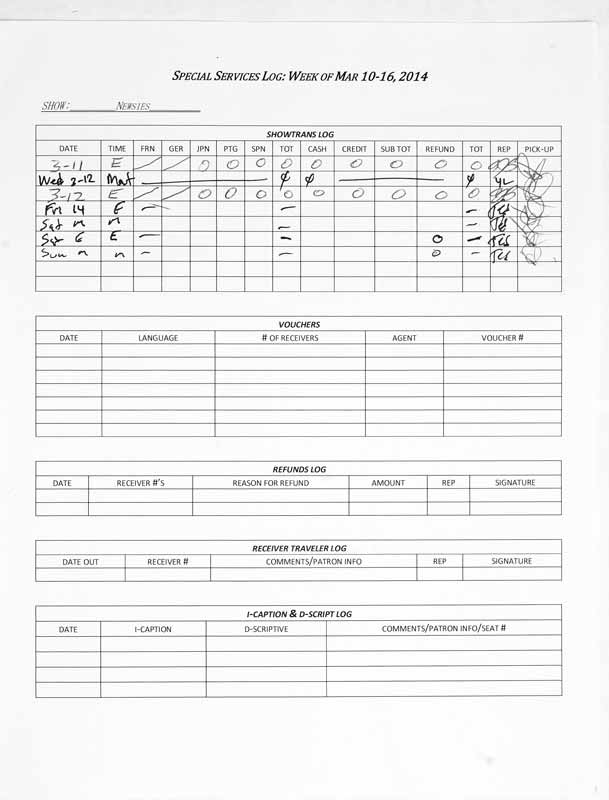 SPECIAL SERVICES LOG: WEEK OF MAR 10-16, 2014
SHOW: NEWSIES
SHOWTRANS LOG
DATE TIME FRN GER JPN PTG SPN TOT CASH CREDIT SUB TOT REFUND TOT REP PICK-UP
3-11 E / / 0 0 0 0 0 0 0 0 0
Wed 3-12 Mat ϕ ϕ ϕ YL
3-12 E / / 0 0 0 0 0 0 0 0 0
Fri 14 E — — — JES
Sat m m — — JES
Sat E E — — 0 — JES
Sun m m — — 0 — JES
VOUCHERS
DATE LANGUAGE # OF RECEIVERS AGENT VOUCHER #
REFUNDS LOG
DATE RECEIVER #'S REASON FOR REFUND AMOUNT REP SIGNATURE
RECEIVER TRAVELER LOG
DATE OUT RECEIVER # COMMENTS/PATRON INFO REP SIGNATURE
I-CAPTION & D-SCRIPT LOG
DATE I-CAPTION D-SCRIPTIVE COMMENTS/PATRON INFO/SEAT #